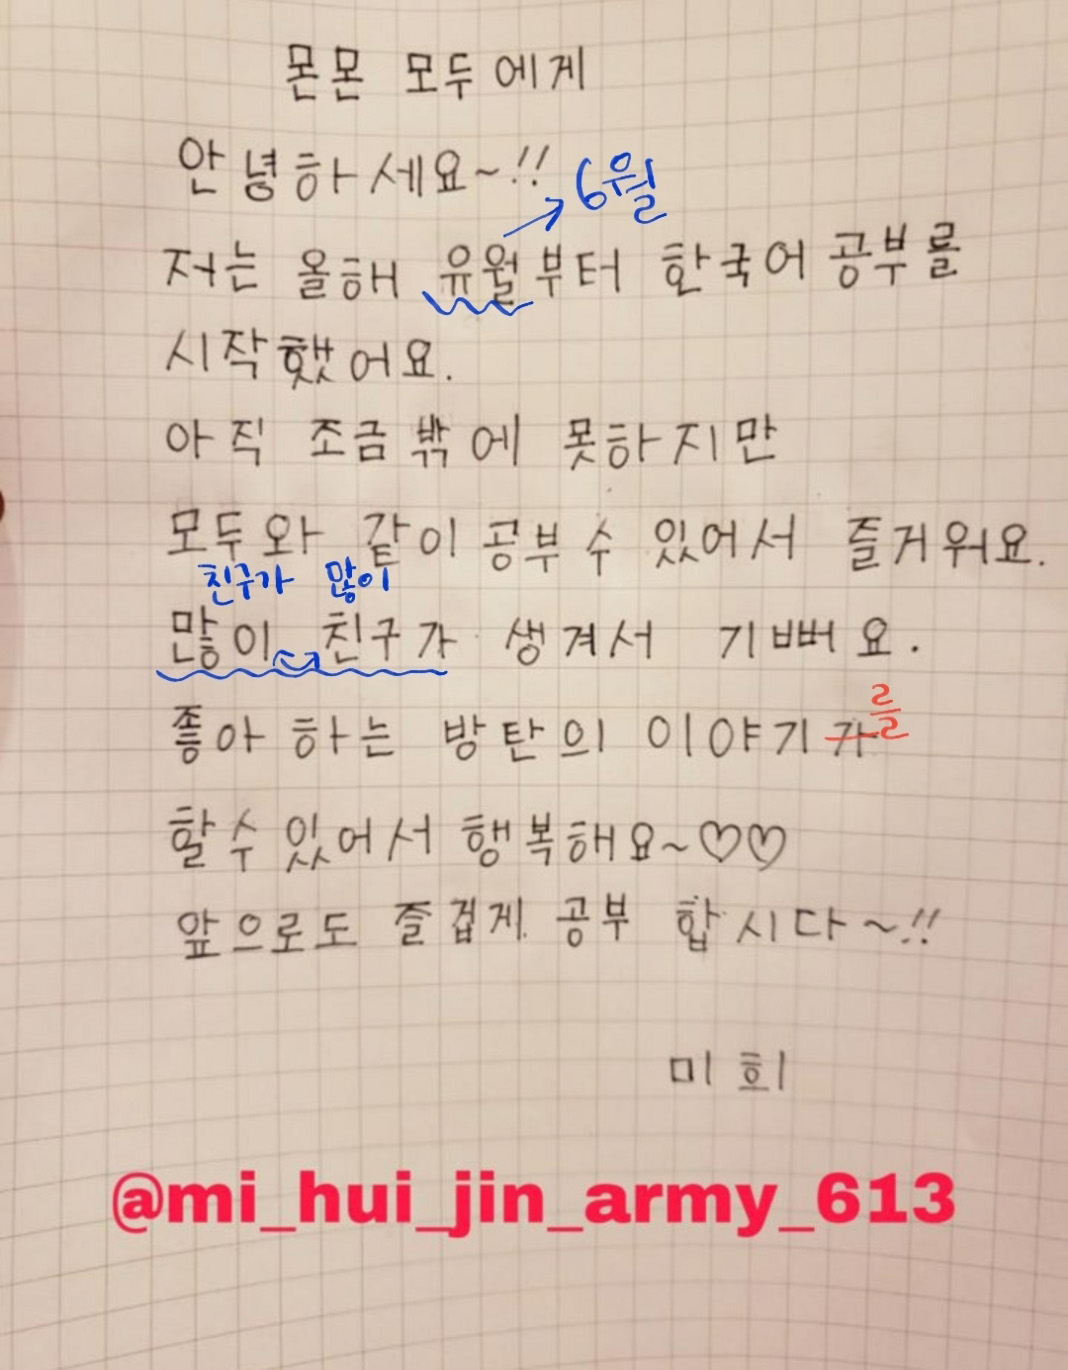 몬몬 모두에게
안녕하세요~!!
6월
저는 올해 유월부터 한국어 공부를
시작했어요.
아직 조금밖에 못하지만
모두와 같이 공부 수 있어서 즐거워요.
친구가 많이
많이 친구가 생겨서 기뻐요.
를
좋아 하는 방탄의 이야기가
할수 있어서 행복해요~♡♡
앞으로도 즐겁게 공부 합시다~!!
미희
@mi_hui_jin_army_613